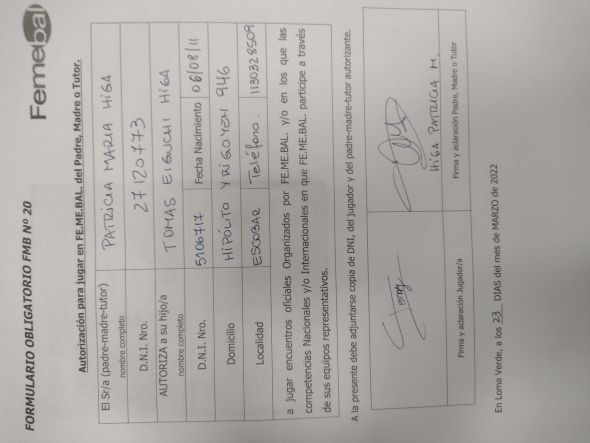 FORMULARIO OBLIGATORIO FMB Nº 20
Femebal
Autorización para jugar en FE.ME.BAL. del Padre, Madre o Tutor.
El Sr/a (padre-madre-tutor) PATRICIA MARIA HIGA
nombre completo
D.N.I. Nro. 27120773
AUTORIZA a su hijo/a TOMAS EIGNCHI HIGA
nombre completo
D.N.I. Nro. 5106717 Fecha Nacimiento 06/08/11
Domicilio HIPÓLITO YRIGOYEN 946
Localidad ESCOBAR Teléfono. 1130328509
a jugar encuentros oficiales Organizados por FE.ME.BAL. y/o en los que las
competencias Nacionales y/o Internacionales en que FE.ME.BAL. participe a través
de sus equipos representativos.
A la presente debe adjuntarse copia de DNI, del jugador y del padre-madre-tutor autorizante.
HIGA PATRICIA M.
Firma y aclaración Jugador/a Firma y aclaración Padre, Madre o Tutor
En Loma Verde, a los 23 DIAS del mes de MARZO de 2022